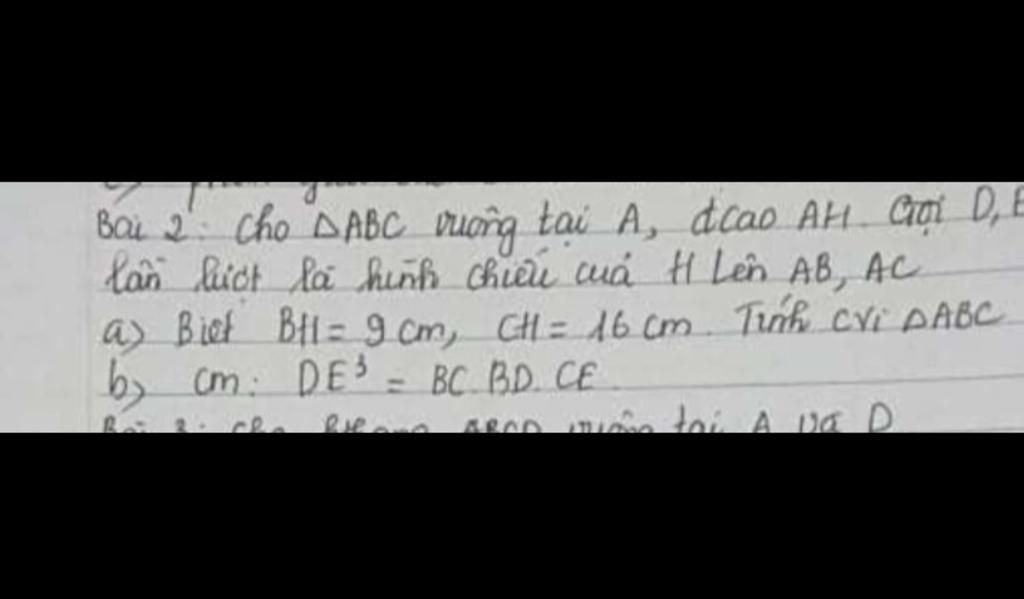 Bài 2: Cho △ABC vuông tại A, đcao AH. Gọi D, E
lần lượt là hình chiếu của H lên AB, AC
a) Biết BH = 9 cm, CH = 16 cm. Tính cvi △ABC
b) cm: DE³ = BC. BD. CE.
Bài 3: Cho hthang ABCD vuông tại A và D